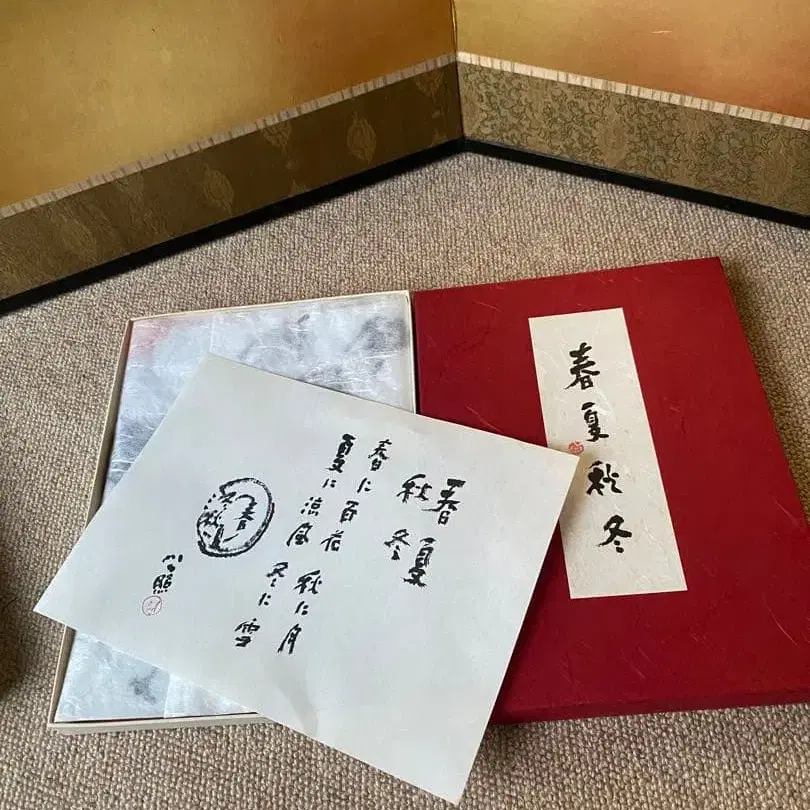 春夏
秋冬
春に百花 秋に月
夏に涼風 冬に雪
公照
春夏秋冬